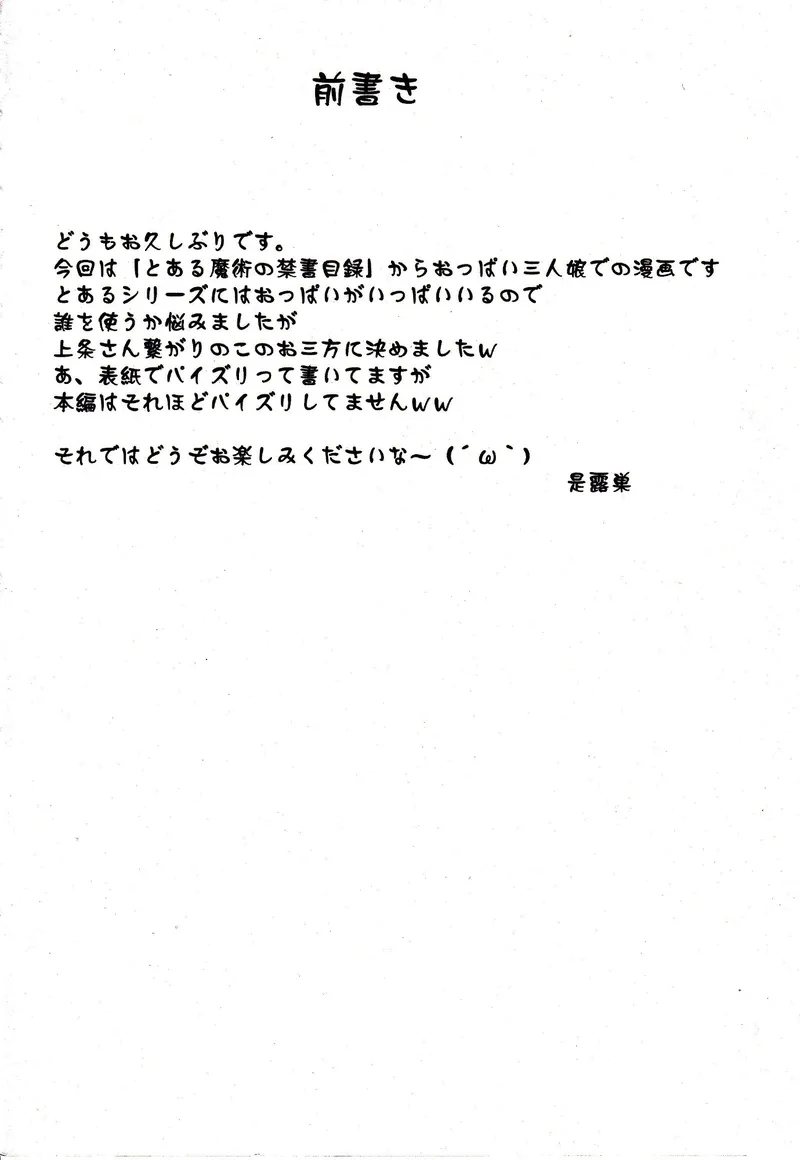 前書き
どうもお久しぶりです。
今回は「とある魔術の禁書目録」からおっぱい三人娘での漫画です
とあるシリーズにはおっぱいがいっぱいいるので
誰を使うか悩みましたが
上条さん繋がりのこのお三方に決めましたw
あ、表紙でパイズリって書いてますが
本編はそれほどパイズリしてませんww
それではどうぞお楽しみくださいな～（´ω｀）
是露巣